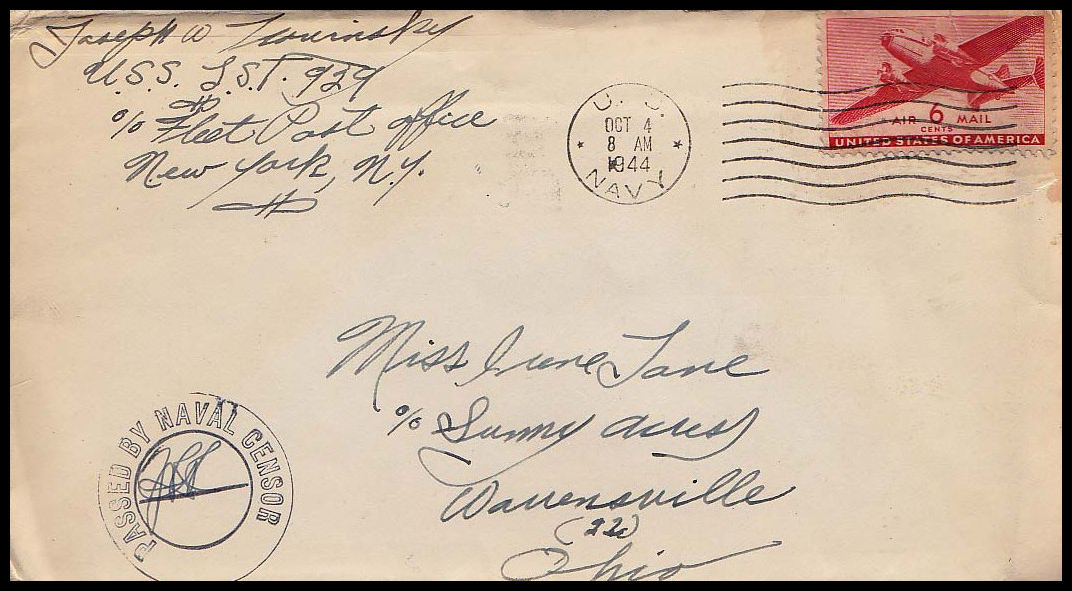 Joseph W
U.S.S. L.S.T. 929
c/o Fleet Post Office
New York, N.Y.
U. S.
OCT 4
8 AM
1944
NAVY
AIR 6 MAIL
CENTS
UNITED STATES OF AMERICA
Miss Irene Jane
c/o Sunny Acres
Warrensville
(22)
Ohio
PASSED BY NAVAL CENSOR